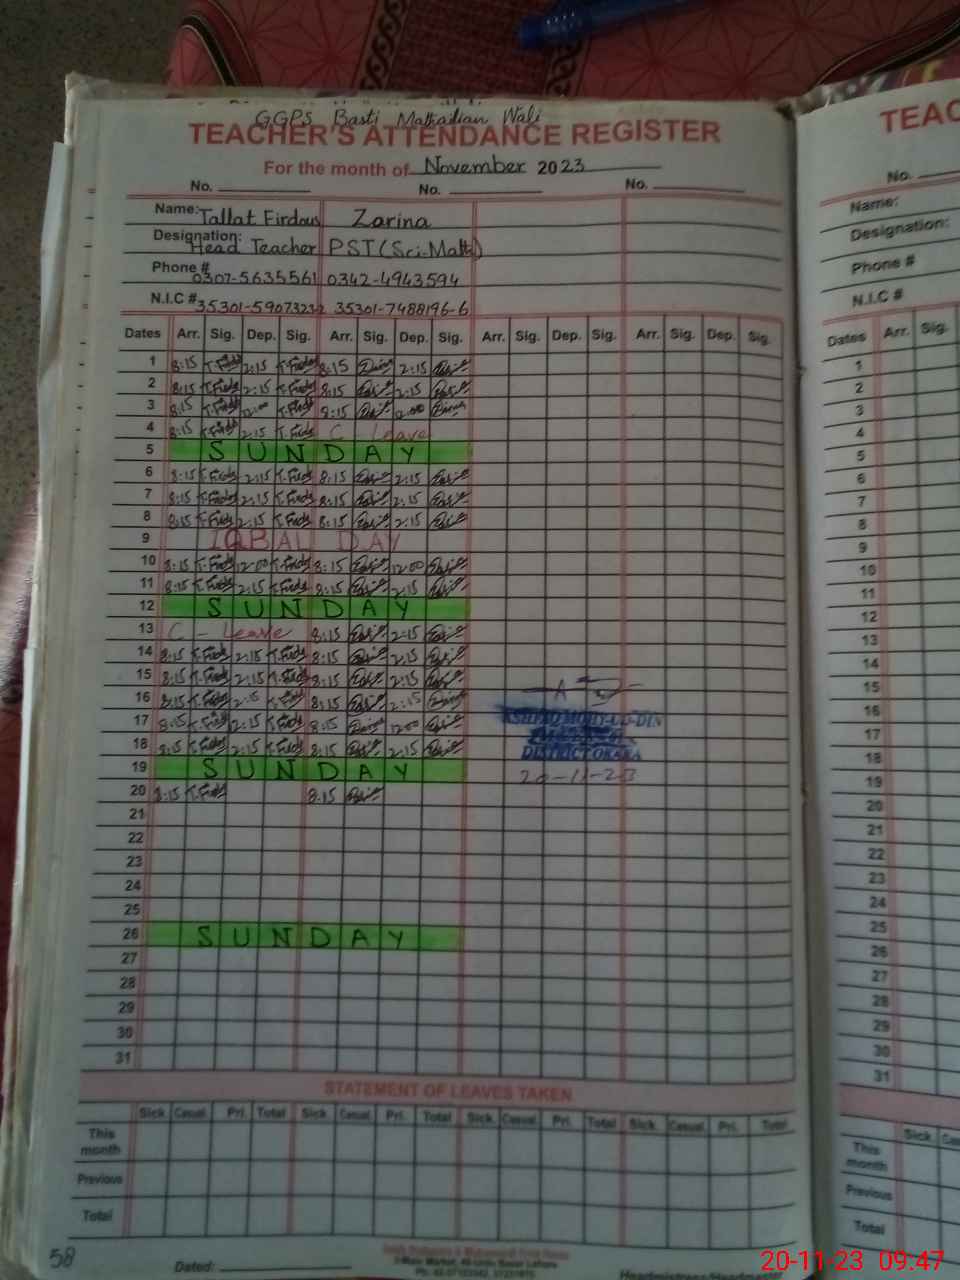 GGPS Basti Matkailian Wali
TEACHER'S ATTENDANCE REGISTER
For the month of November 2023
No. No. No.
Name: Tallat Firdous Zarina
Designation: Head Teacher PST (Sci-Math)
Phone # 0307-5635561 0342-4943594
N.I.C # 35301-5907323-2 35301-7488196-6
Dates Arr. Sig. Dep. Sig. Arr. Sig. Dep. Sig. Arr. Sig. Dep. Sig. Arr. Sig. Dep. Sig.
1 8:15 T.Firds 2:15 T.Firds 8:15 2:15
2 8:15 T.Firds 2:15 T.Firds 8:15 2:15
3 8:15 T.Firds 12:00 T.Firds 8:15 12:00
4 8:15 T.Firds 2:15 T.Firds C Leave
5 SUNDAY
6 8:15 T.Firds 2:15 T.Firds 8:15 2:15
7 8:15 T.Firds 2:15 T.Firds 8:15 2:15
8 8:15 T.Firds 2:15 T.Firds 8:15 2:15
9 IQBAL DAY
10 8:15 T.Firds 12:00 T.Firds 8:15 12:00
11 8:15 T.Firds 2:15 T.Firds 8:15 2:15
12 SUNDAY
13 C - Leave 8:15 2:15
14 8:15 T.Firds 2:15 T.Firds 8:15 2:15
15 8:15 T.Firds 2:15 T.Firds 8:15 2:15
16 8:15 T.Firds 2:15 T.Firds 8:15 2:15
17 8:15 T.Firds 12:15 T.Firds 8:15 12:00
18 8:15 T.Firds 2:15 T.Firds 8:15 2:15
MOHY-UD-DIN
DISTRICT OKARA
20-11-23
19 SUNDAY
20 8:15 T.Firds 8:15
21
22
23
24
25
26 SUNDAY
27
28
29
30
31
STATEMENT OF LEAVES TAKEN
Sick Casual Pri. Total Sick Casual Pri. Total Sick Casual Pri. Total Sick Casual Pri. Total
This month
Previous
Total
58
Dated:
Headmistress/Headmaster
TEAC
No.
Name:
Designation:
Phone #
N.I.C #
Dates Arr. Sig.
1
2
3
4
5
6
7
8
9
10
11
12
13
14
15
16
17
18
19
20
21
22
23
24
25
26
27
28
29
30
31
Sick
This month
Previous
Total
20-11-23 09:47